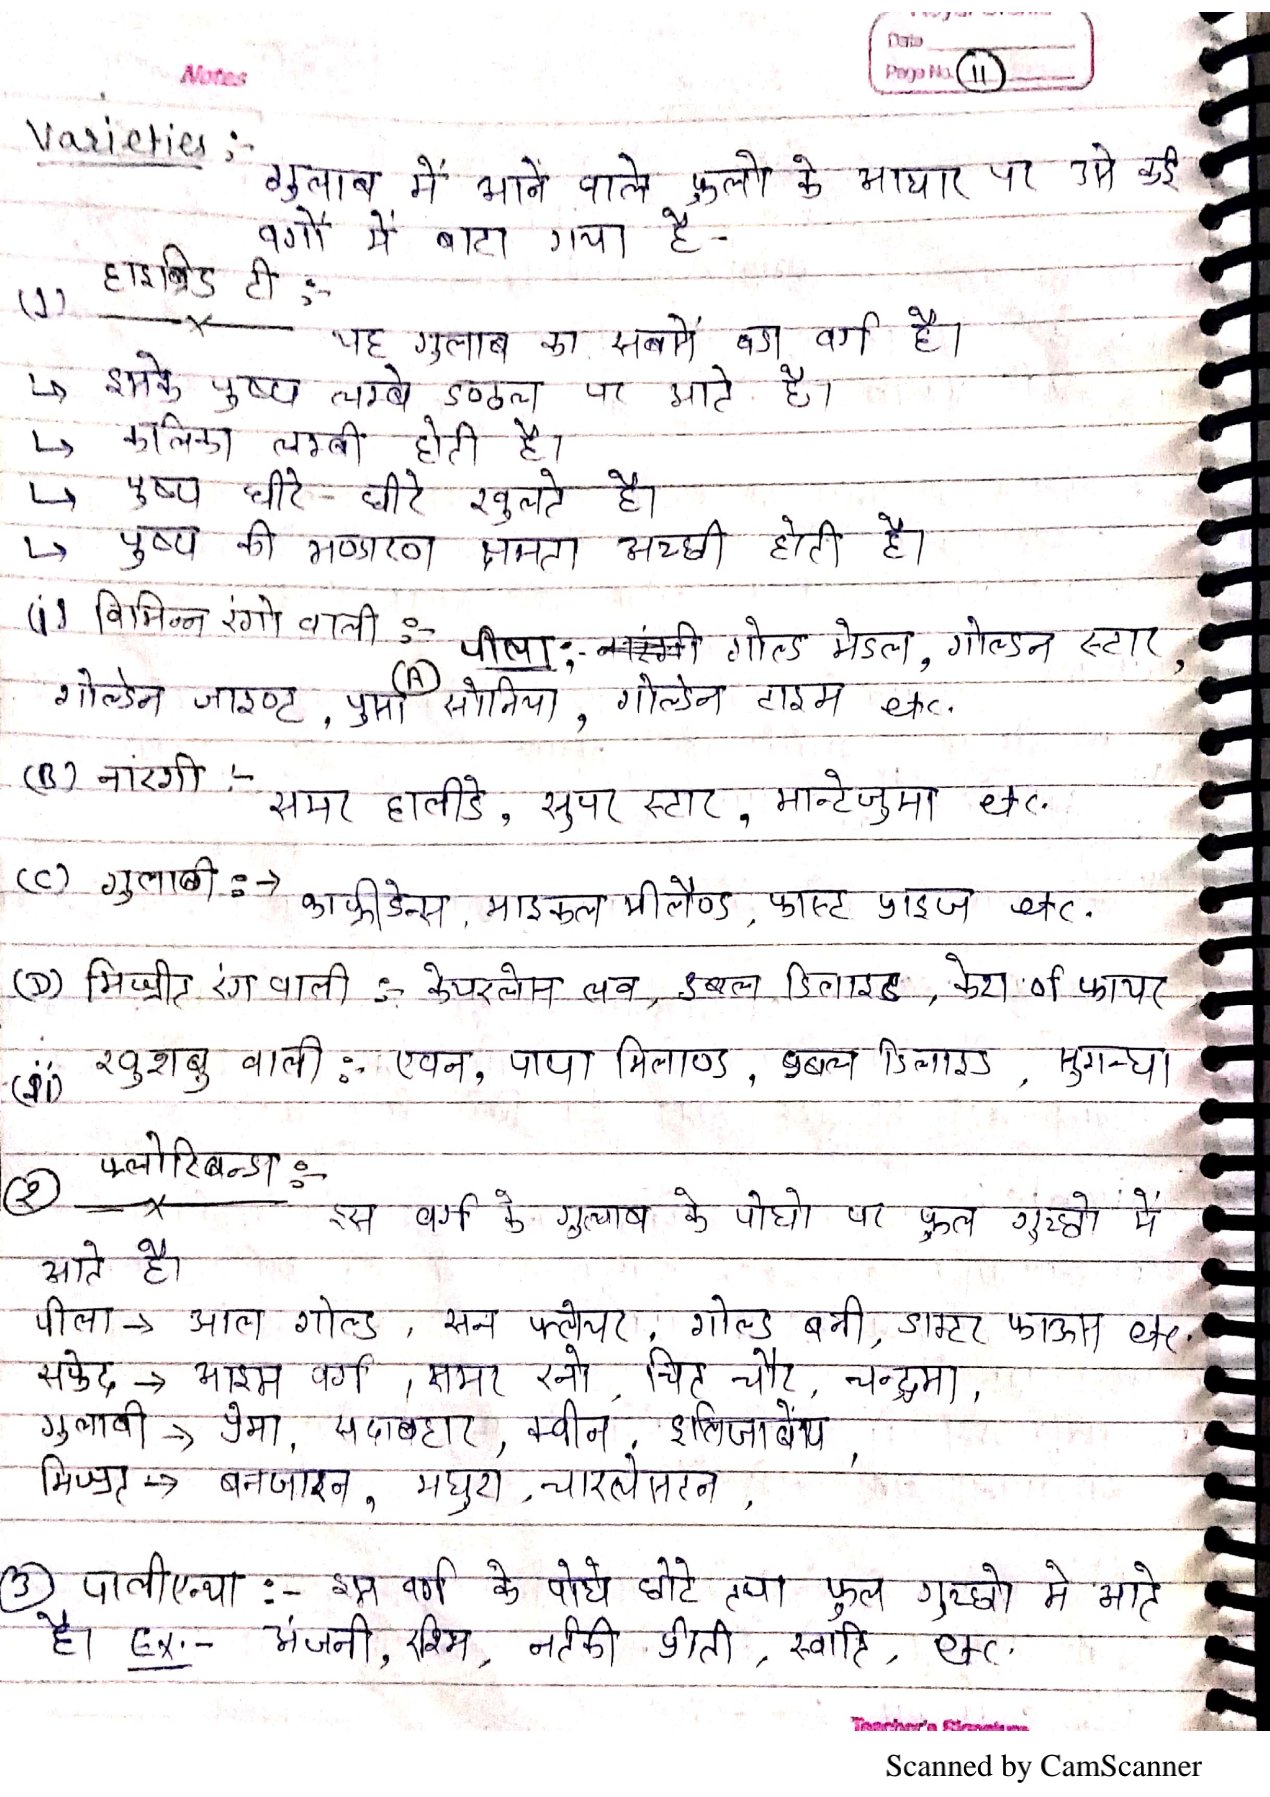 Date
Notes
Page No. 11
Varieties :-
गुलाब में आनें वाले फुलो के आधार पर उसे कई
वर्गों में बाटा गया है -
(1) हाइब्रिड टी :-
यह गुलाब का सबसें बडा वर्ग है।
↳ इसके पुष्प लम्बे डण्ठल पर आते है।
↳ कलिका लम्बी होती है।
↳ पुष्प धीरे - धीरे खुलते है।
↳ पुष्प की भण्डारण क्षमता अच्छी होती है।
(i) विभिन्न रंगो वाली :- (A) पीला :- गोल्ड मेडल, गोल्डन स्टार,
गोल्डेन जाइण्ट, पुसा सोनिया, गोल्डेन टाइम etc.
(B) नारंगी :-
समर हालीडे, सुपर स्टार, मान्टेजुमा etc.
(C) गुलाबी :→
काफ्रीडेन्स, माइकल मीलैण्ड, फास्ट प्राइज etc.
(D) मिश्रीत रंग वाली :- केयरलेस लव, डबल डिलाइट, केश of फायर
(ii) खुशबु वाली :- एवन, पापा मिलाण्ड, डबल डिलाइड, सुगन्धा
(2) फ्लोरिबन्डा :-
इस वर्ग के गुलाब के पोधो पर फुल गुच्छो में
आते है।
पीला → आल गोल्ड, सन फ्लेयर, गोल्ड बनी, डास्टर फाऊस etc.
सफेद → आइस वर्ग, समर स्नो, चित चौर, चन्द्रमा,
गुलाबी → प्रेमा, सदाबहार, क्वीन, इलिजाबेंथ,
मिश्रत → बनजारन, मधुरा, चारलेसटन,
(3) पालीएन्था :- इस वर्ग के पोधे छोटे तथा फुल गुच्छो मे आते
है। Ex.:- अंजनी, रश्मि, नर्तकी प्रीती, स्वाति, etc.
Teacher's Signature
Scanned by CamScanner